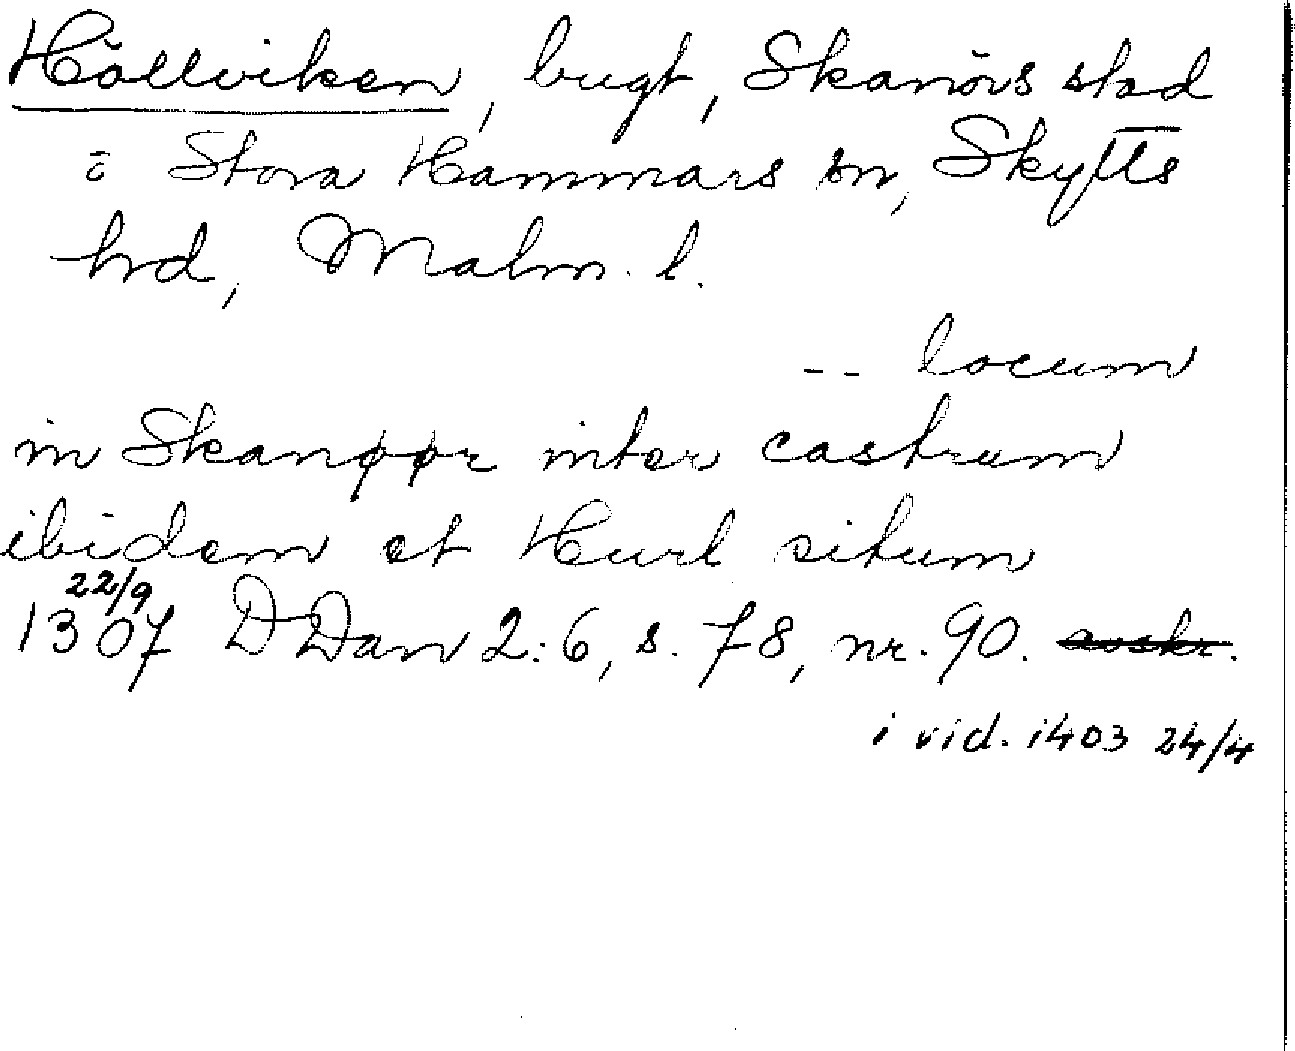 Höllviken, bugt, Skanörs stad
o Stora Hammars sn, Skytts
hrd, Malm. l.
-- locum
in Skanøør inter castrum
ibidem et Hurl situm
22/9
1307 DDan 2:6, s. 78, nr. 90. avskr.
i vid. 1403 24/4